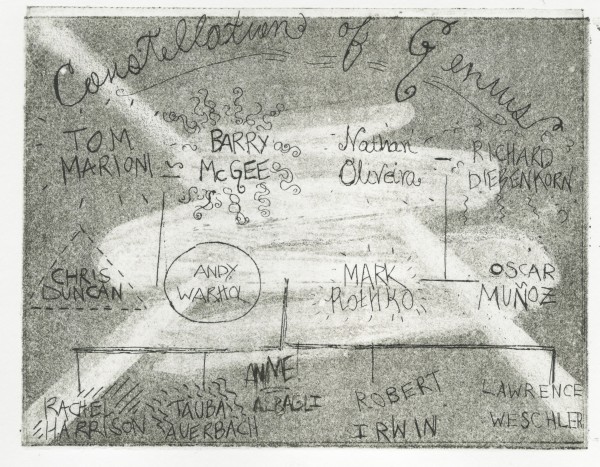 Constellation of Genius
TOM
MARIONI
BARRY
McGEE
Nathan
Oliveira
RICHARD
DIEBENKORN
CHRIS
DUNCAN
ANDY
WARHOL
MARK
ROTHKO
OSCAR
MUÑOZ
RACHEL
HARRISON
TAUBA
AUERBACH
ANNE
ALBAGLI
ROBERT
IRWIN
LAWRENCE
WESCHLER